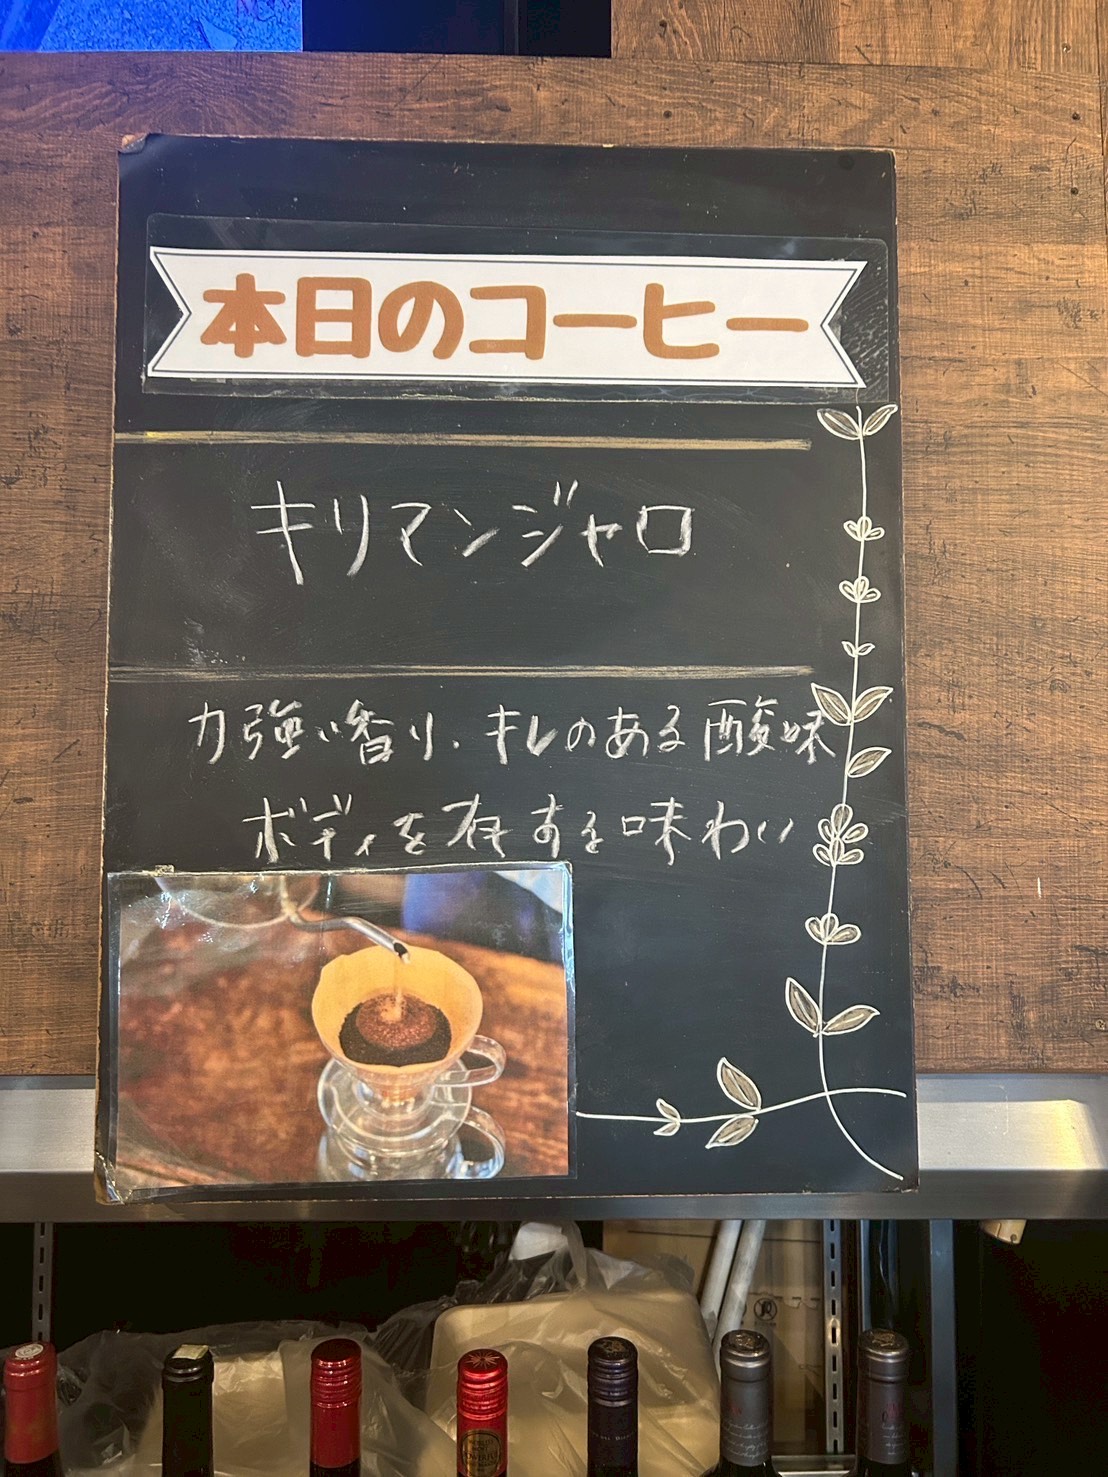 本日のコーヒー
キリマンジャロ
力強い香り、キレのある酸味
ボディを有する味わい